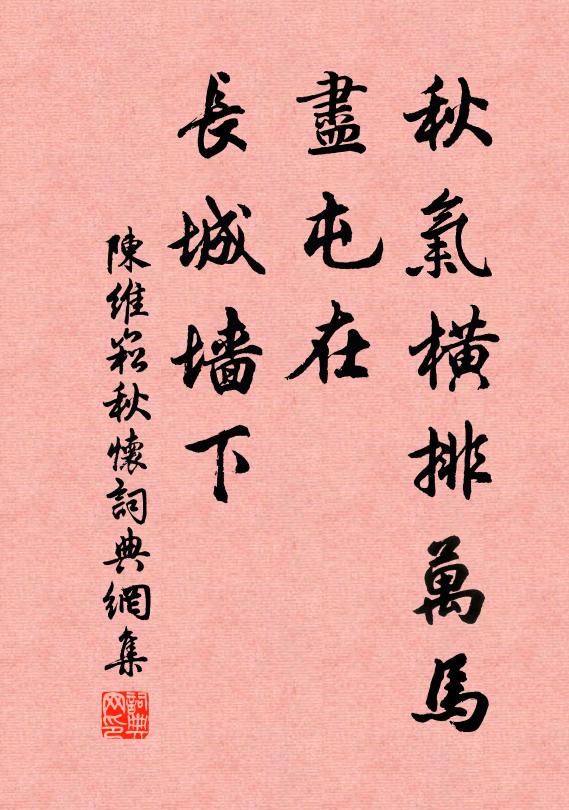 秋氣橫排萬馬
盡屯在
長城墻下
陳維崧秋懷詞典網集
詞典
网印